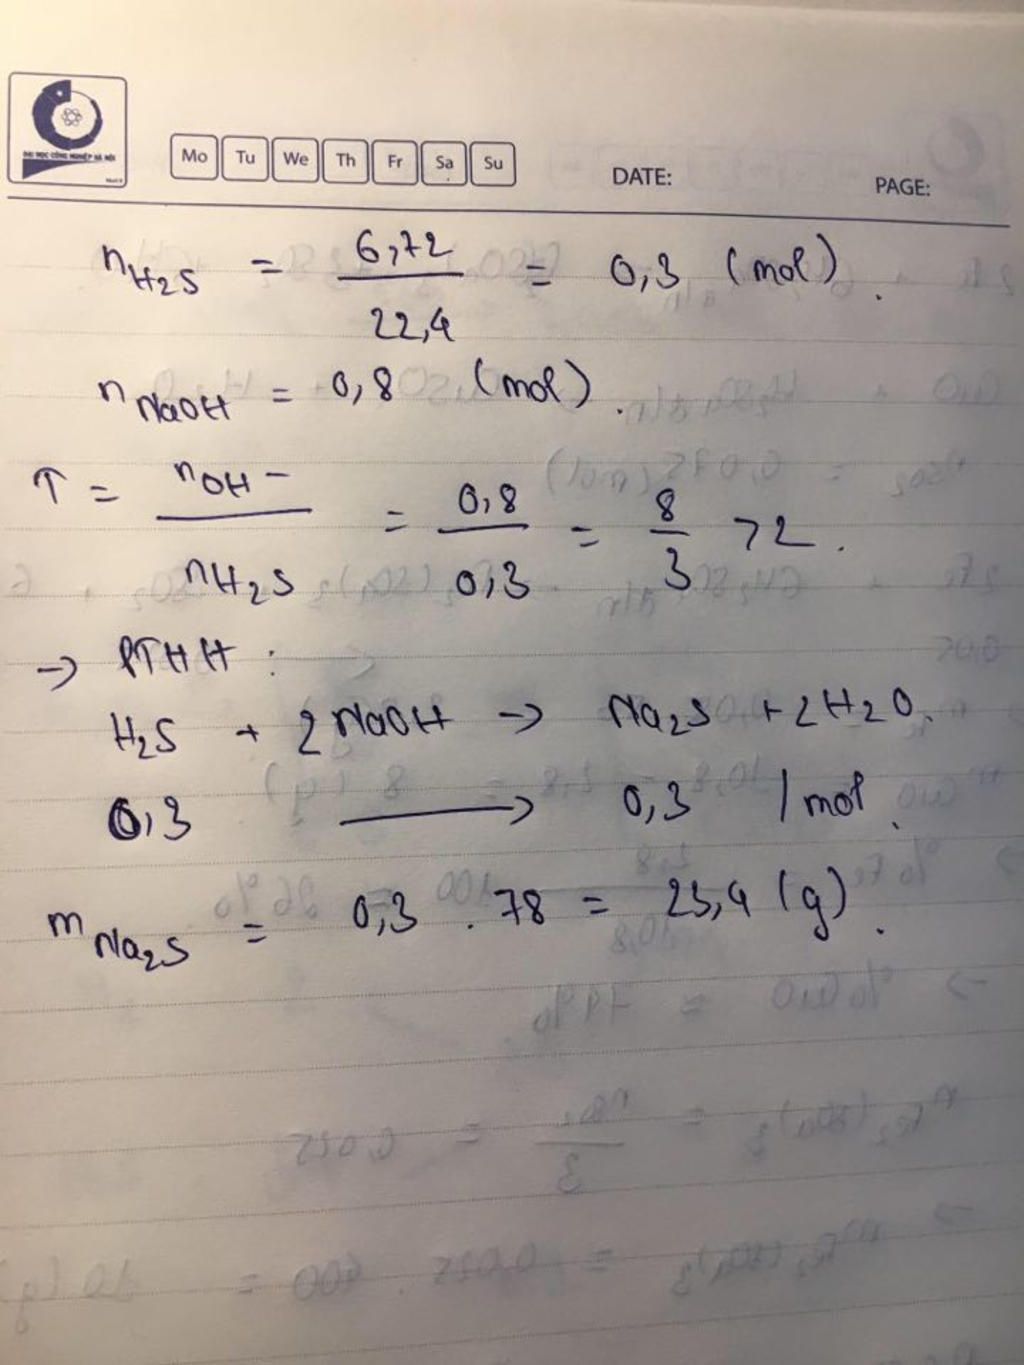 ĐẠI HỌC CÔNG NGHIỆP HÀ NỘI
Mo Tu We Th Fr Sa Su DATE: PAGE:
nH₂S = 6,72 / 22,4 = 0,3 (mol).
nNaOH = 0,8 (mol).
T = nOH⁻ / nH₂S = 0,8 / 0,3 = 8 / 3 > 2.
→ PTHH:
H₂S + 2NaOH → Na₂S + 2H₂O.
0,3 → 0,3 / mol.
mNa₂S = 0,3 . 78 = 23,4 (g).